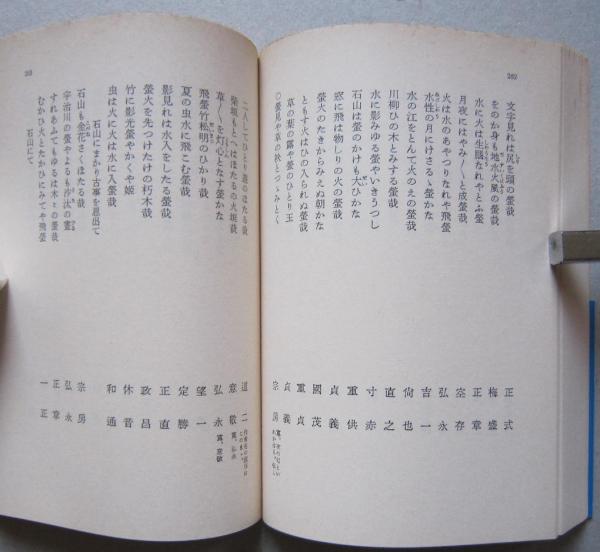 262
文字見れは尻を頭の螢哉 正式
をのか身も地水火風の螢哉 梅盛
水に火は生臈なれやとふ螢 正章
月夜にはやみ〳〵と成螢哉 空存
火は水のあやつりなれや飛螢 弘永
水性の月にけさるゝ螢かな 吉一
水の江をとんて火のえの螢哉 尙也
川柳ひの木とみする螢哉 直之
水に影みゆる螢やいきうつし 寸赤
石山は螢のかけも大ひかな 重供
窓に飛は物しりの火の螢哉 貞義
螢火のたきからみえぬ朝かな 國茂
ともす火はひの入られぬ螢哉 重貞
草の葉の露や螢のひとり王 貞義
○螢見や草の秋とゝみとく 宗房
263
二人してひとり遊のほたる哉 道二
柴垣もとへはほたるの火垣哉 意敬
草〳〵を灯心となす螢かな 弘永
飛螢竹松明のひかり哉 望一
夏の虫水に飛こむ螢哉 定勝
影見れは水入をしたる螢哉 正直
螢火を先つけたけの朽木哉 政昌
竹に影光螢やかくや姬 休音
虫は火に火は水に入螢哉 和通
石山にまかり古事を思出て
石山も金花さくほたる哉 宗房
宇治川の螢やよるも沙汰の靈 弘永
すれあふてもゆるは木々の螢哉 正章
むかひ火とたかひにみてや飛螢 一正
石山にて